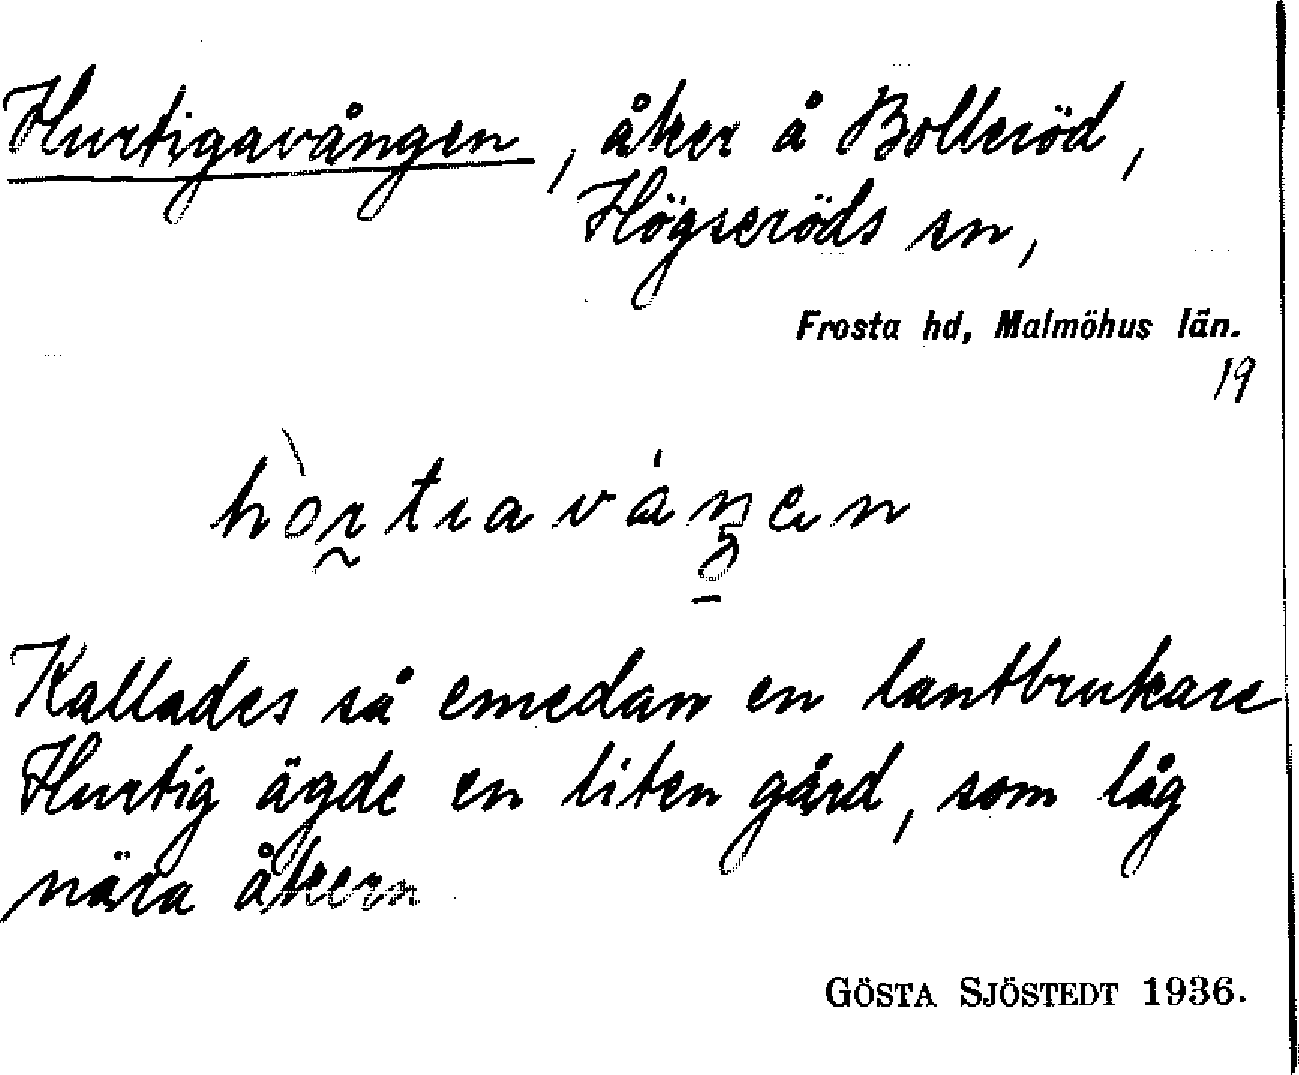 Hurtigavången, åker å Bolleröd,
Högseröds sn,
Frosta hd, Malmöhus län.
19
Kallades så emedan en lantbrukare
Hurtig ägde en liten gård, som låg
nära åkern
GÖSTA SJÖSTEDT 1936.